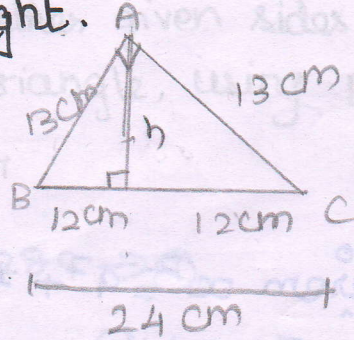 ght.
A
13cm
13cm
h
B
12cm
12cm
C
24 cm